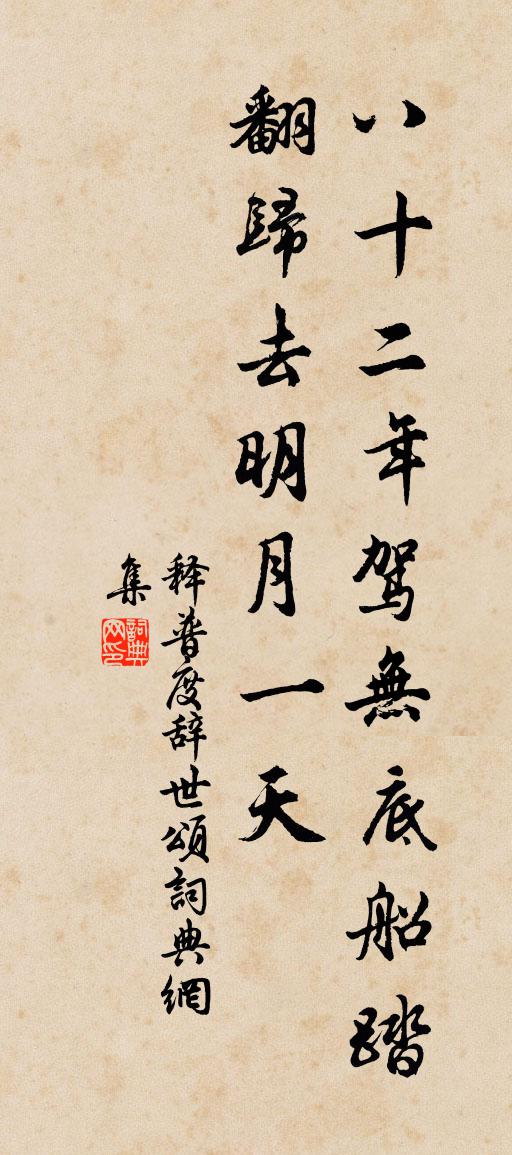 八十二年駕無底船踏
翻歸去明月一天
釋普度辞世頌詞典網
集
詞典網印